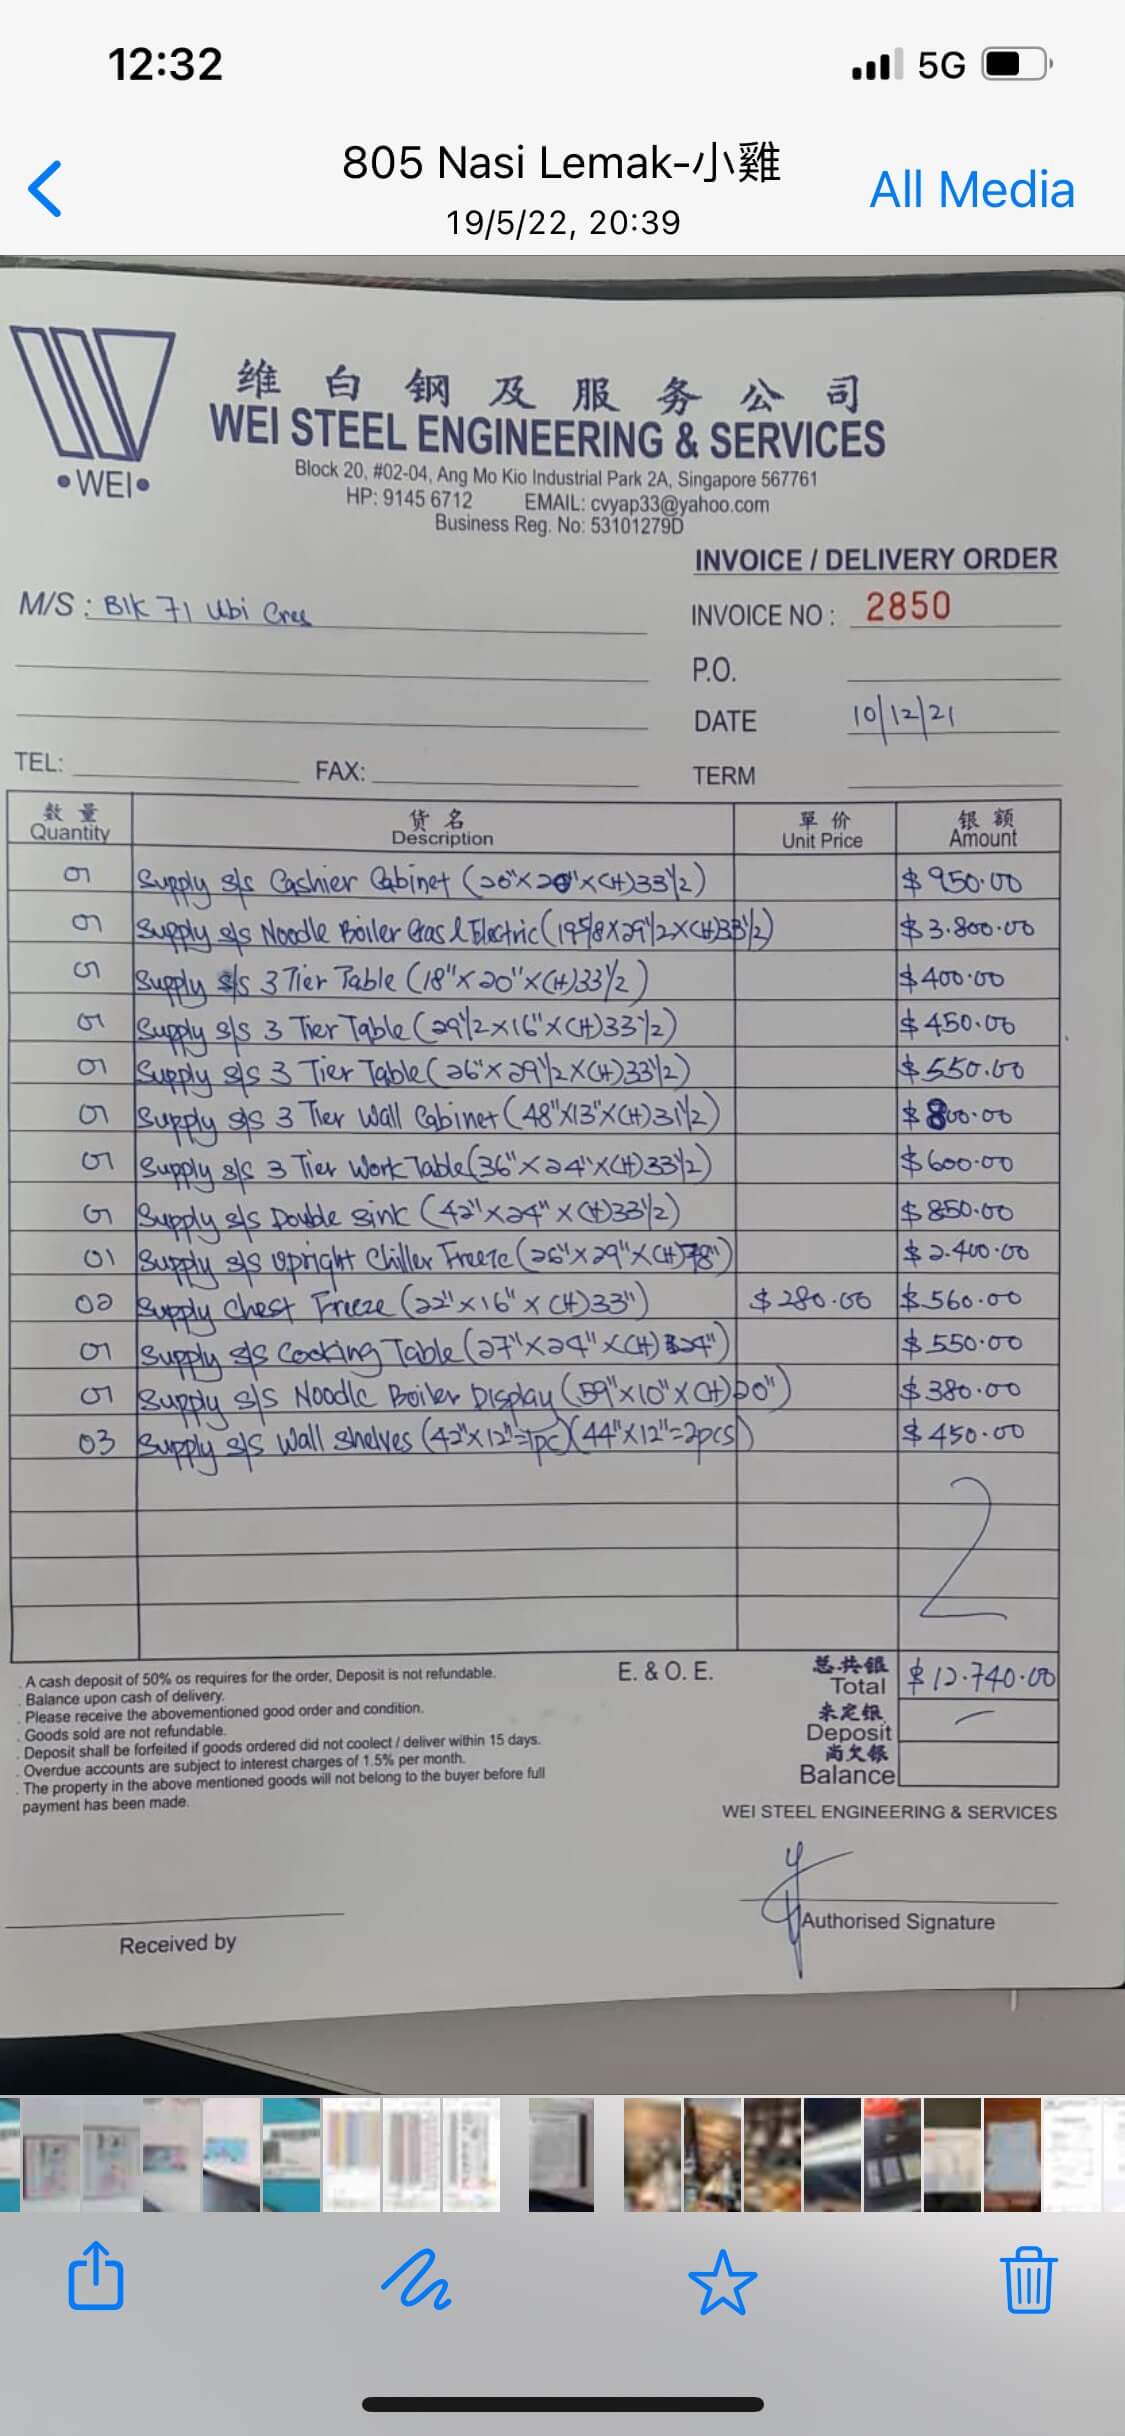 12:32
5G
805 Nasi Lemak-小雞
19/5/22, 20:39
All Media
维白钢及服务公司
WEI STEEL ENGINEERING & SERVICES
•WEI•
Block 20, #02-04, Ang Mo Kio Industrial Park 2A, Singapore 567761
HP: 9145 6712 EMAIL: cvyap33@yahoo.com
Business Reg. No: 53101279D
INVOICE / DELIVERY ORDER
M/S : Blk 71 Ubi Cres
INVOICE NO : 2850
P.O.
DATE 10/12/21
TEL: FAX:
TERM
数量 货名 單价 银额
Quantity Description Unit Price Amount
01 Supply s/s Cashier Cabinet (20"X20"X(H)33½) $950.00
01 Supply s/s Noodle Boiler Gas & Electric (195/8X29½X(H)33½) $3.800.00
01 Supply s/s 3 Tier Table (18"X20"X(H)33½) $400.00
01 Supply s/s 3 Tier Table (29½X16"X(H)33½) $450.00
01 Supply s/s 3 Tier Table (26"X29½X(H)33½) $550.00
01 Supply s/s 3 Tier Wall Cabinet (48"X13"X(H)31½) $800.00
01 Supply s/s 3 Tier Work Table (36"X24"X(H)33½) $600.00
01 Supply s/s Double Sink (42"X24"X(H)33½) $850.00
01 Supply s/s Upright Chiller Freeze (26"X29"X(H)78") $2.400.00
02 Supply Chest Freeze (22"X16"X(H)33") $280.00 $560.00
01 Supply s/s Cooking Table (27"X24"X(H)24") $550.00
01 Supply s/s Noodle Boiler Display (59"X10"X(H)20") $380.00
03 Supply s/s Wall Shelves (42"X12"=1pc)(44"X12"=2pcs) $450.00
A cash deposit of 50% os requires for the order, Deposit is not refundable.
Balance upon cash of delivery.
Please receive the abovementioned good order and condition.
Goods sold are not refundable.
Deposit shall be forfeited if goods ordered did not coolect / deliver within 15 days.
Overdue accounts are subject to interest charges of 1.5% per month.
The property in the above mentioned goods will not belong to the buyer before full
payment has been made.
E. & O. E.
总共银
Total $12.740.00
来定银
Deposit –
尚欠银
Balance
WEI STEEL ENGINEERING & SERVICES
Authorised Signature
Received by